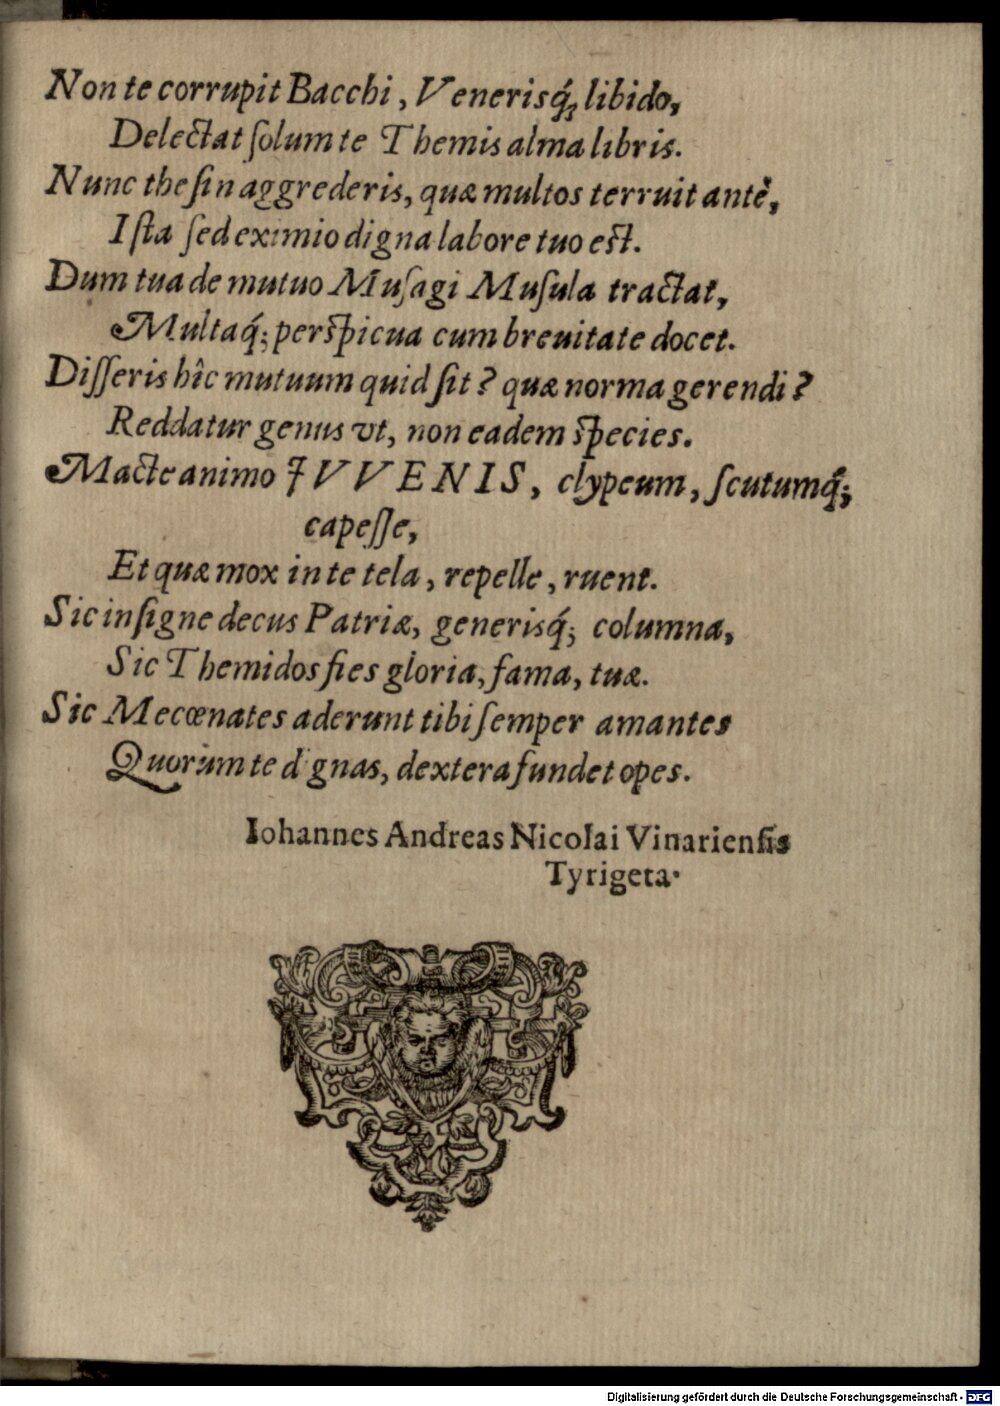 Non te corrupit Bacchi, Venerisq́; libido,
Delectat ſolum te Themis alma libris.
Nunc theſin aggrederis, quæ multos terruit antè,
Iſta ſed eximio digna labore tuo eſt.
Dum tua de mutuo Muſagi Muſula tractat,
Multaq́; perſpicua cum breuitate docet.
Diſſeris hîc mutuum quid ſit? quæ norma gerendi?
Reddatur genus vt, non eadem ſpecies.
Macte animo JVVENIS, clypeum, ſcutumq́;
capeſſe,
Et quæ mox in te tela, repelle, ruent.
Sic inſigne decus Patriæ, generisq́; columna,
Sic Themidos fies gloria, fama, tuæ.
Sic Mecœnates aderunt tibi ſemper amantes
Quorum te d gnas, dextera fundet opes.
Iohannes Andreas Nicolai Vinarienſis
Tyrigeta.
Digitalisierung gefördert durch die Deutsche Forschungsgemeinschaft - DFG